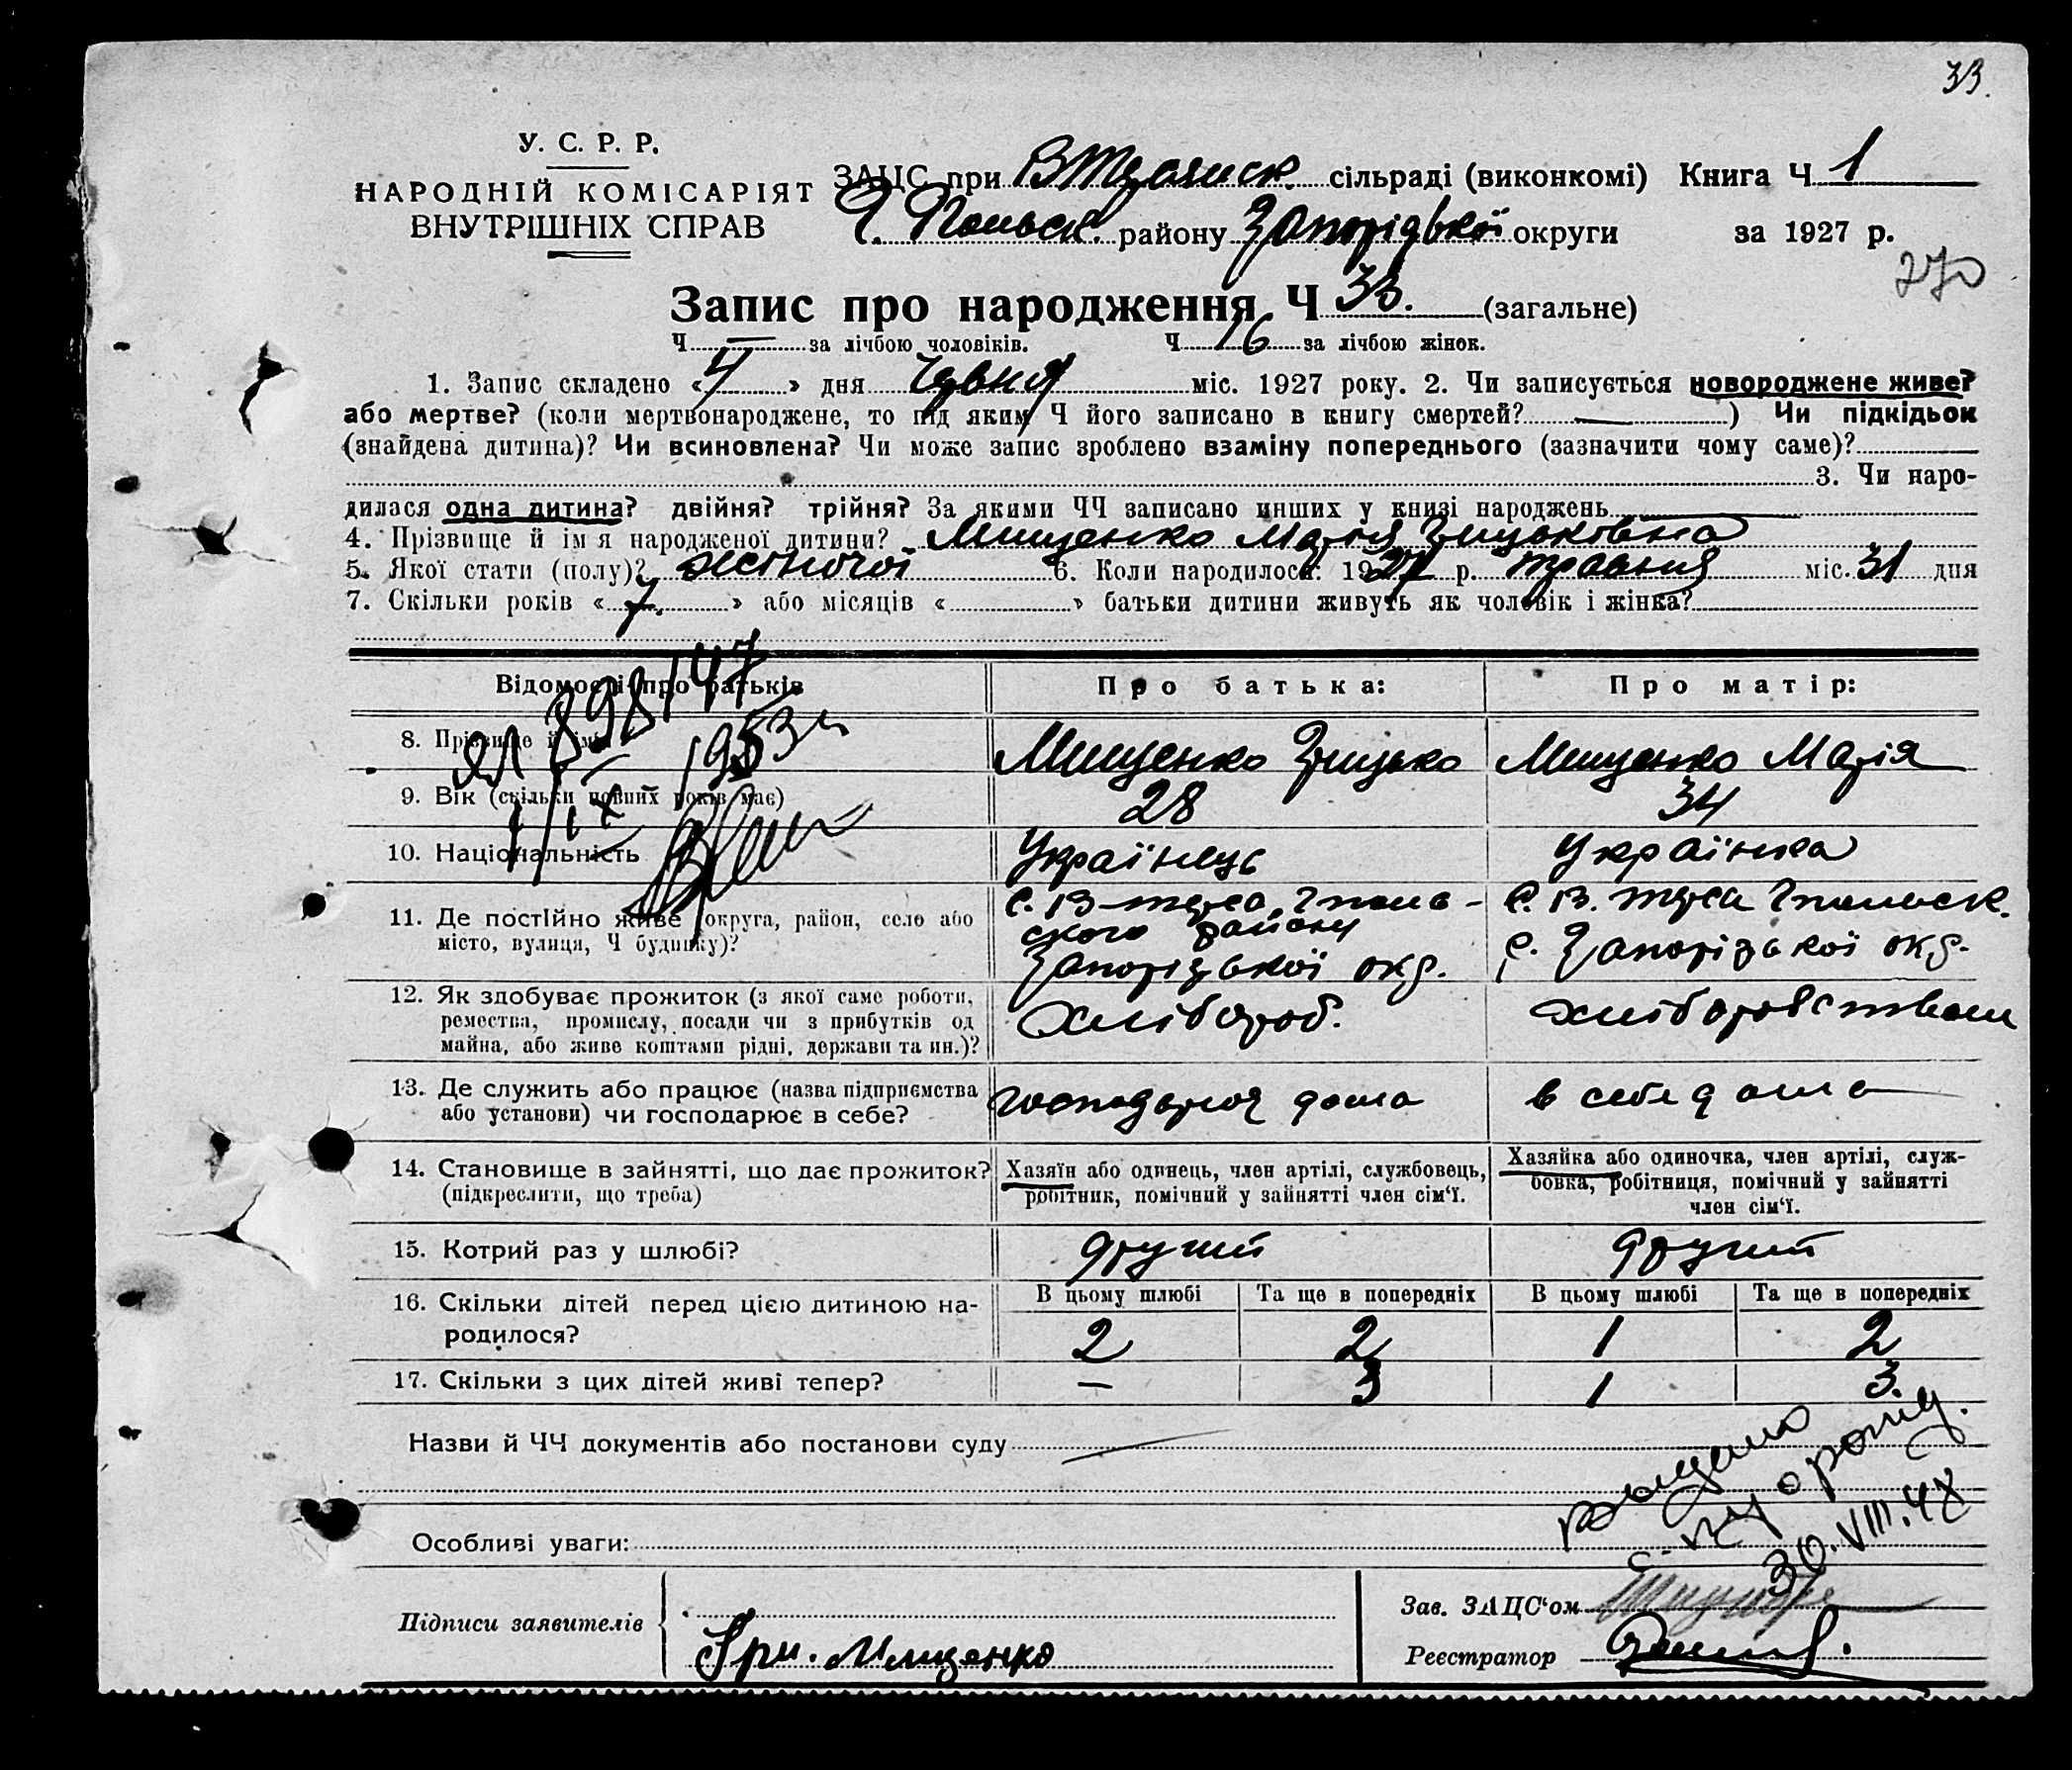 33.
У. С. Р. Р.
НАРОДНІЙ КОМІСАРІЯТ
ВНУТРІШНІХ СПРАВ
ЗАЦС при сільраді (виконкомі) Книга Ч 1
району Запорізької округи за 1927 р.
270
Запис про народження Ч 33. (загальне)
Ч — за лічбою чоловіків. Ч 16 за лічбою жінок.
1. Запис складено « » дня Червня міс. 1927 року. 2. Чи записується новороджене живе?
або мертве? (коли мертвонароджене, то під яким Ч його записано в книгу смертей? — ) Чи підкідьок
(знайдена дитина)? Чи всиновлена? Чи може запис зроблено взаміну попереднього (зазначити чому саме)?
3. Чи наро-
дилася одна дитина? двійня? трійня? За якими ЧЧ записано инших у книзі народжень
4. Прізвище й ім я народженої дитини? Мищенко Марія Грицьковна
5. Якої стати (полу)? жіночої 6. Коли народилося: 1927 р. травня міс. 31 дня
7. Скільки років « 7. » або місяців « » батьки дитини живуть як чоловік і жінка?
898/47
Відомості про батьків Про батька: Про матір:
1953
8. Прізвище й імя Мищенко Грицько Мищенко Марія
9. Вік (скільки повних років має) 28 34
10. Національність Українець Українка
11. Де постійно живе (округа, район, село або
місто, вулиця, Ч будинку)?
ского району
Запорізької окр. Запорізької окр.
12. Як здобуває прожиток (з якої саме роботи,
ремества, промислу, посади чи з прибутків од
майна, або живе коштами рідні, держави та ин.)?
хлібороб. хліборобством
13. Де служить або працює (назва підприємства
або установи) чи господарює в себе?
господарює дома в себе дома
14. Становище в зайнятті, що дає прожиток?
(підкреслити, що треба)
Хазяїн або одинець, член артілі, службовець,
робітник, помічний у зайнятті член сім'ї.
Хазяйка або одиночка, член артілі, служ-
бовка, робітниця, помічний у зайнятті
член сім'ї.
15. Котрий раз у шлюбі? другий другий
16. Скільки дітей перед цією дитиною на-
родилося?
В цьому шлюбі Та ще в попередніх В цьому шлюбі Та ще в попередніх
2 2 1 2
17. Скільки з цих дітей живі тепер? — 3 1 3
Назви й ЧЧ документів або постанови суду
выдано
о рожд.
30.VIII.48
Особливі уваги:
Підписи заявителів
Гри. Мищенко
Зав. ЗАЦС'ом
Реєстратор